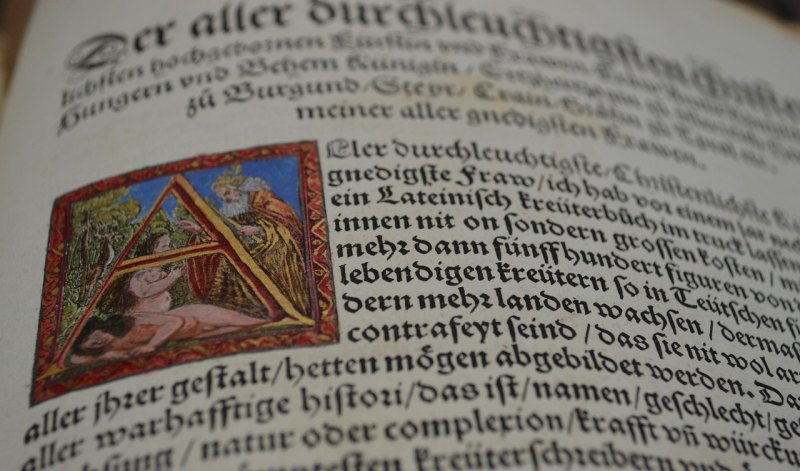 Der aller durchleuchtigsten Christen
lichsten hochgebornen Fürstin und Frawen
Hungern vnd Behem Künigin
zů Burgund/Steyr/Crain
meiner aller gnedigsten Frawen.
ALler durchleuchtigste/Christenlichste
gnedigste Fraw/ich hab vor einem jar
ein Lateinisch kreüterbůch im truck lassen
innen nit on sondern grossen kosten/
mehr dann fünffhundert figuren von
lebendigen kreütern so in Teütschen
dern mehr landen wachsen/dermas
contrafeyt seind/das sie nit wol
aller jhrer gestalt/hetten mögen abgebildet werden. Das
aller warhafftige histori/das ist/namen/geschlecht/
natur oder complexion/krafft vñ würcku
kreüterschreibern